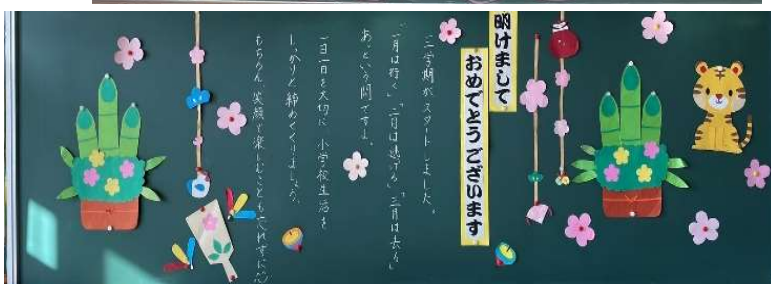 明けまして
おめでとうございます
三学期がスタートしました。
「一月は行く」「二月は逃げる」「三月は去る」
あっという間ですよ。
一日一日を大切に 小学校生活を
しっかりと締めくくりましょう。
もちろん 笑顔で楽しむことも忘れずに